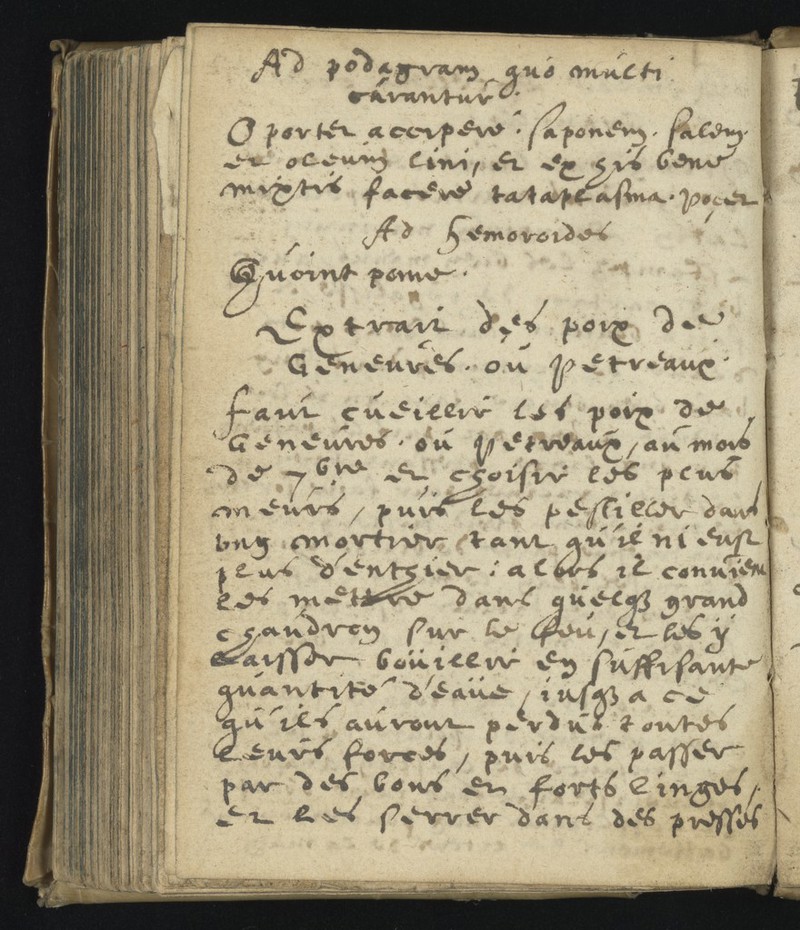 Ad podagram quo multi
curantur.
Oportet accipere. saponem. salem.
et oleum lini, et ex his bene
mixtis facere cataplasma.
Ad hemoroides
Extrait des poix de
Geneures. ou Petreaux.
faut cueillir les poix de
Geneures. ou Petreaux, au mois
de 7bre et choisir les plus
meurs, puis les pestiller dans
vng mortier tant qu'il ni eust
plus d'enthier: alors il convient
les mettre dans quelq3 grand
chaudron sur le feu, et les ÿ
laisser boüillir en suffisante
quantité d'eaüe, iusq3 a ce
qu'ils auront perdus toutes
leurs forces, puis les passer
par des bons et forts linges,
et les serrer dans des presses